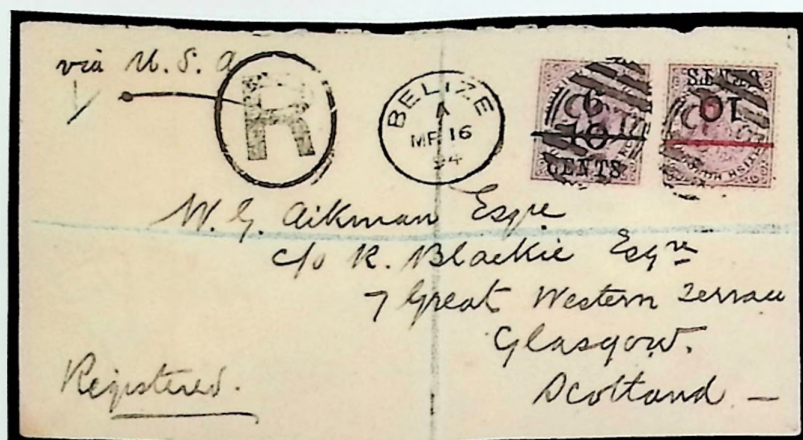 via U. S. A
R
BELIZE
A
MR 16
94
6
10
CENTS
CENTS
10
W. G. Aikman Esqre
c/o R. Blackie Esqre
7 Great Western Terrace
Glasgow.
Scotland
Registered.